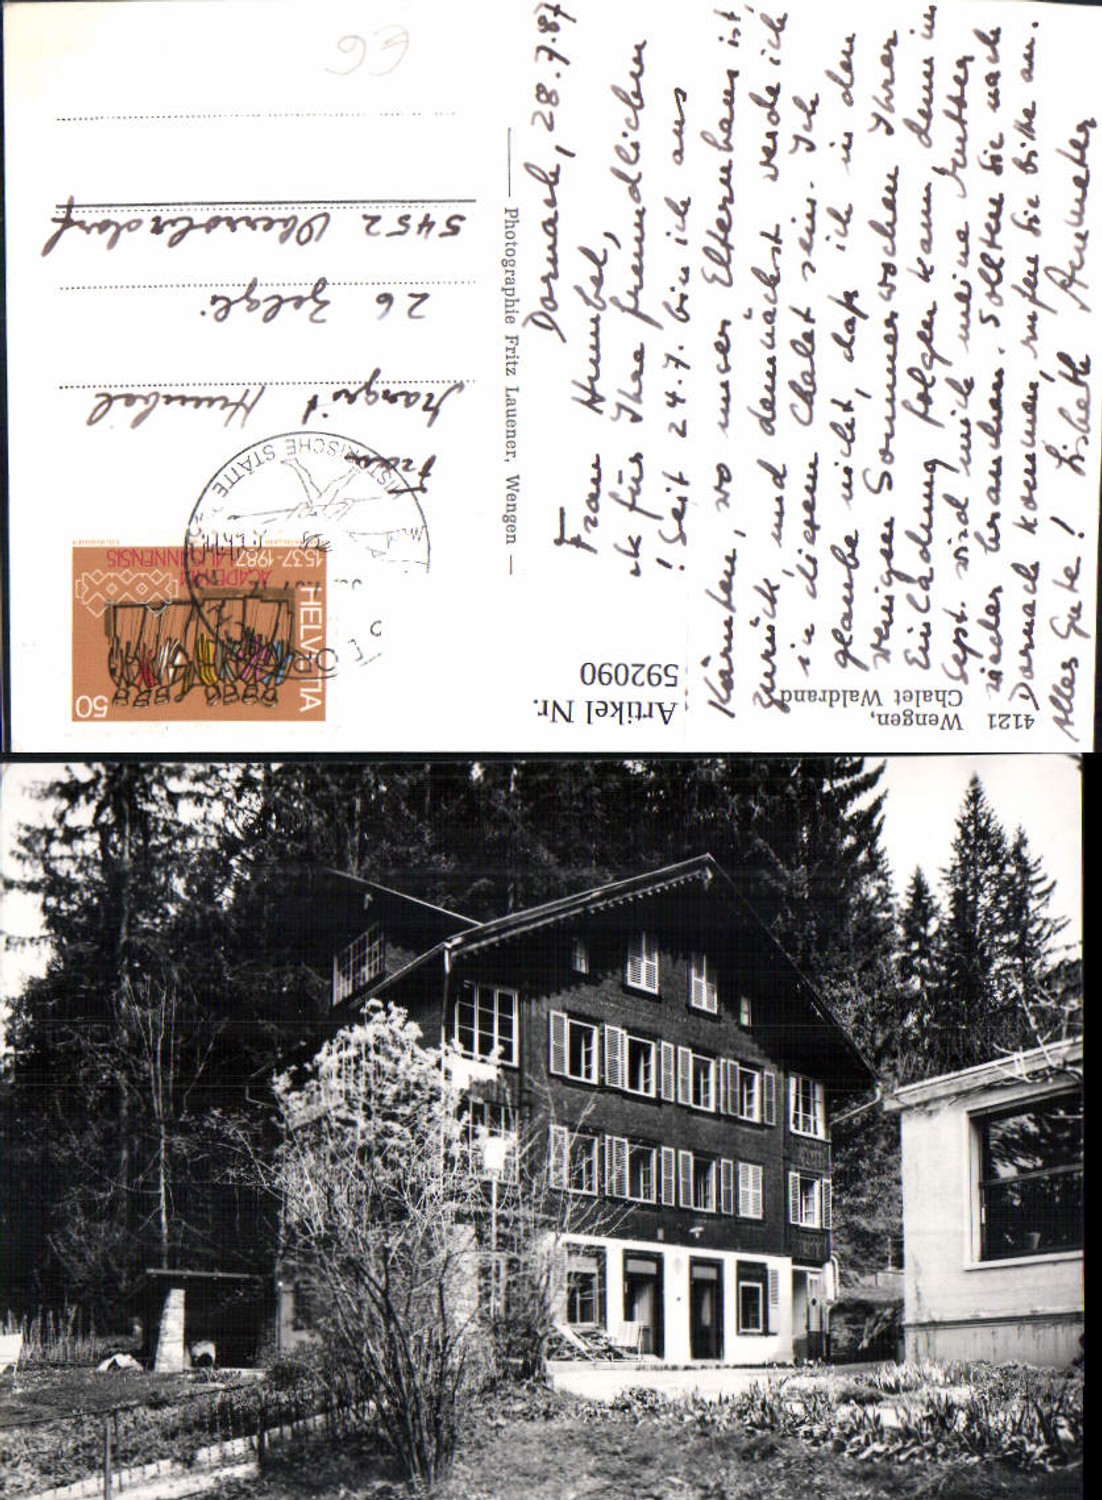 4121 Wengen,
Chalet Waldrand
Dornach, 28.7.87
Frau Humbel,
für Ihre freundlichen
! Seit 24.7. bin ich aus
Kärnten, wo unser Elternhaus ist,
zurück, und demnächst werde ich
in diesem Chalet sein. Ich
glaube nicht, daß ich in den
wenigen Sommerwochen Ihrer
Einladung folgen kann, denn im
Sept. wird mich meine Mutter
wieder brauchen. Sollten Sie nach
Dornach kommen, rufen Sie bitte an.
Alles Gute! Lisbeth
Photographie Fritz Lauener, Wengen
HELVETIA
50
1537-1987
ACADEMIA
LAUSANNENSIS
HISTORISCHE STÄTTE
Frau
Margrit Humbel
26 Zelgli
5452 Oberrohrdorf
Artikel Nr.
592090